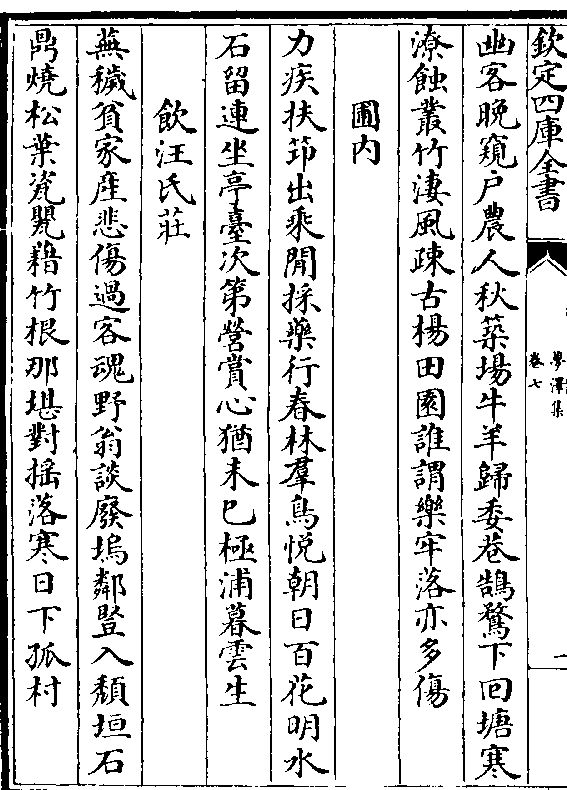 欽定四庫全書
夢澤集
卷七
幽客晚窺户農人秋築場牛羊歸委巷鵠鶩下囘塘寒
潦蝕叢竹淒風疎古楊田園誰謂樂牢落亦多傷
圃内
力疾扶笻出乘閒採藥行春林羣鳥悦朝日百花明水
石留連坐亭臺次第營賞心猶未已極浦暮雲生
飲汪氏莊
蕪穢貧家産悲傷過客魂野翁談廢塢鄰豎入頽垣石
鼎燒松葉瓷甖藉竹根那堪對揺落寒日下孤村